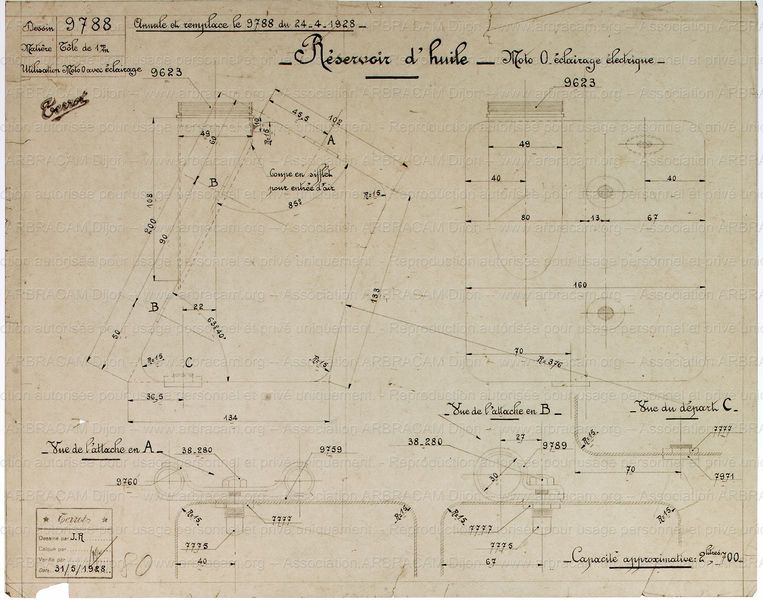 Dessin 9788
Annule et remplace le 9788 du 24-4-1928
Matière Tôle de 1 m/m
Utilisation Moto O avec éclairage
Réservoir d'huile — Moto O. éclairage électrique
Terrot
9623
9623
49
45,5
102
A
R=15
Coupe en sifflet
pour entrée d'air
85°
B
108
200
90
B
50
22
63°40'
R=15
R=15
R=15
C
36,5
134
133
49
40
40
80
13
67
160
70
R=376
Vue de l'attache en A
38-280
9759
9760
R=15
7777
R=15
7775
40
Vue de l'attache en B
38-280
27
9789
30
R=15
7777
7775
67
Vue du départ C
R=15
7777
7971
70
R=15
Capacité approximative: 2 litres,700
Terrot
Dessiné par J.R
Calqué par
Vérifié par
Date: 31/5/1928
80
www.arbracam.org — Association ARBRACAM Dijon
Reproduction autorisée pour usage personnel et privé uniquement.